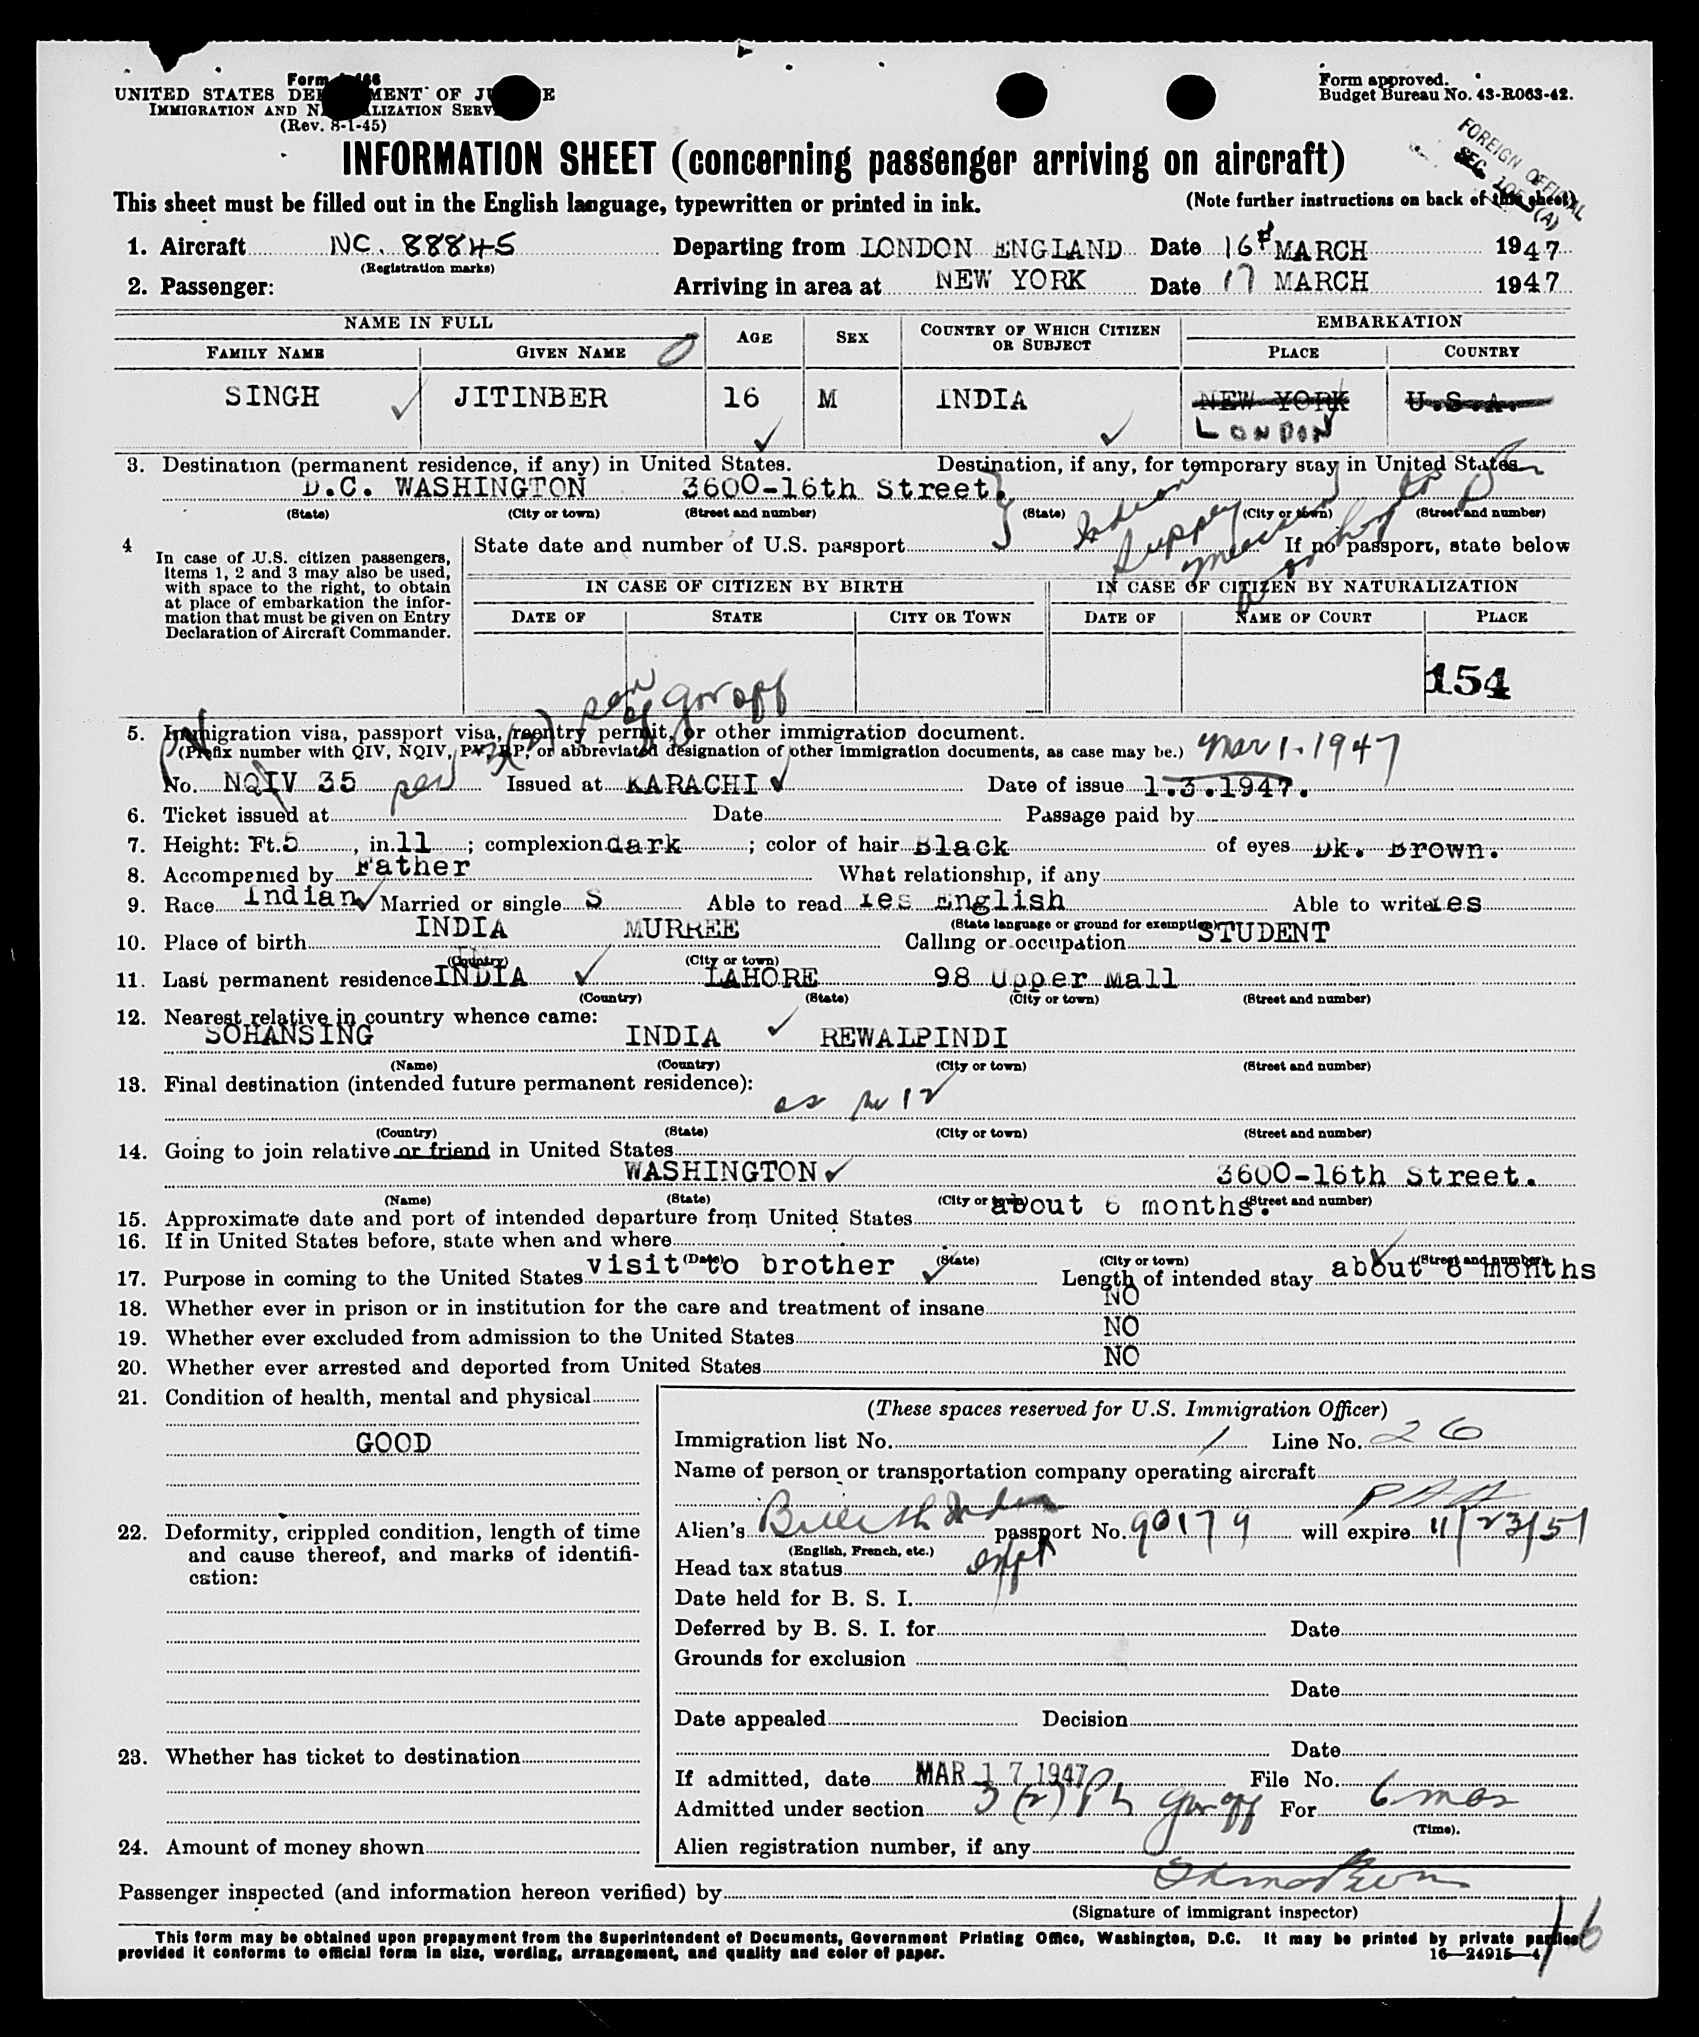 Form
UNITED STATES DEPARTMENT OF JUSTICE
IMMIGRATION AND NATURALIZATION SERVICE
(Rev. 8-1-45)
Form approved.
Budget Bureau No. 43-R063-42.
FOREIGN OFFICIAL
SEC.
(A)
INFORMATION SHEET (concerning passenger arriving on aircraft)
This sheet must be filled out in the English language, typewritten or printed in ink.
(Note further instructions on back of this sheet)
1. Aircraft NC. 88845 Departing from LONDON ENGLAND Date 16th MARCH 1947
(Registration marks)
2. Passenger: Arriving in area at NEW YORK Date 17 MARCH 1947
NAME IN FULL AGE SEX COUNTRY OF WHICH CITIZEN OR SUBJECT EMBARKATION
FAMILY NAME GIVEN NAME PLACE COUNTRY
SINGH JITINBER 16 M INDIA NEW YORK U.S.A.
LONDON
3. Destination (permanent residence, if any) in United States. Destination, if any, for temporary stay in United States
D.C. WASHINGTON 3600-16th Street.
(State) (City or town) (Street and number) (State) (City or town) (Street and number)
Indian Supply Mission
4 In case of U.S. citizen passengers,
items 1, 2 and 3 may also be used,
with space to the right, to obtain
at place of embarkation the infor-
mation that must be given on Entry
Declaration of Aircraft Commander.
State date and number of U.S. passport If no passport, state below
IN CASE OF CITIZEN BY BIRTH IN CASE OF CITIZEN BY NATURALIZATION
DATE OF STATE CITY OR TOWN DATE OF NAME OF COURT PLACE
154
son of Gov off
5. Immigration visa, passport visa, reentry permit, or other immigration document.
(Prefix number with QIV, NQIV, PV, RP, or abbreviated designation of other immigration documents, as case may be.) Mar 1. 1947
No. NQIV 35 Issued at KARACHI Date of issue 1.3.1947.
6. Ticket issued at Date Passage paid by
7. Height: Ft. 5, in. 11; complexion dark; color of hair Black of eyes Dk. Brown.
8. Accompanied by Father What relationship, if any
9. Race Indian Married or single S Able to read Yes English Able to write Yes
(State language or ground for exemption)
10. Place of birth INDIA MURREE Calling or occupation STUDENT
(Country) (City or town)
11. Last permanent residence INDIA LAHORE 98 Upper Mall
(Country) (State) (City or town) (Street and number)
12. Nearest relative in country whence came:
SOHANSING INDIA REWALPINDI
(Name) (Country) (City or town) (Street and number)
13. Final destination (intended future permanent residence):
as in 12
(Country) (State) (City or town) (Street and number)
14. Going to join relative or friend in United States
WASHINGTON 3600-16th Street.
(Name) (State) (City or town) (Street and number)
15. Approximate date and port of intended departure from United States about 6 months.
16. If in United States before, state when and where
(Date) (State) (City or town) (Street and number)
17. Purpose in coming to the United States visit to brother Length of intended stay about 6 months
18. Whether ever in prison or in institution for the care and treatment of insane NO
19. Whether ever excluded from admission to the United States NO
20. Whether ever arrested and deported from United States NO
21. Condition of health, mental and physical
GOOD
22. Deformity, crippled condition, length of time
and cause thereof, and marks of identifi-
cation:
23. Whether has ticket to destination
24. Amount of money shown
(These spaces reserved for U.S. Immigration Officer)
Immigration list No. 1 Line No. 26
Name of person or transportation company operating aircraft
PAA
Alien's British Indian passport No. 90179 will expire 11/23/51
(English, French, etc.)
Head tax status
Date held for B. S. I.
Deferred by B. S. I. for Date
Grounds for exclusion
Date
Date appealed Decision
Date
If admitted, date MAR 17 1947 File No.
Admitted under section 3 (2) Gov off For 6 mos
(Time).
Alien registration number, if any
Passenger inspected (and information hereon verified) by
(Signature of immigrant inspector)
This form may be obtained upon prepayment from the Superintendent of Documents, Government Printing Office, Washington, D.C. It may be printed by private parties
provided it conforms to official form in size, wording, arrangement, and quality and color of paper.
16—24915—4